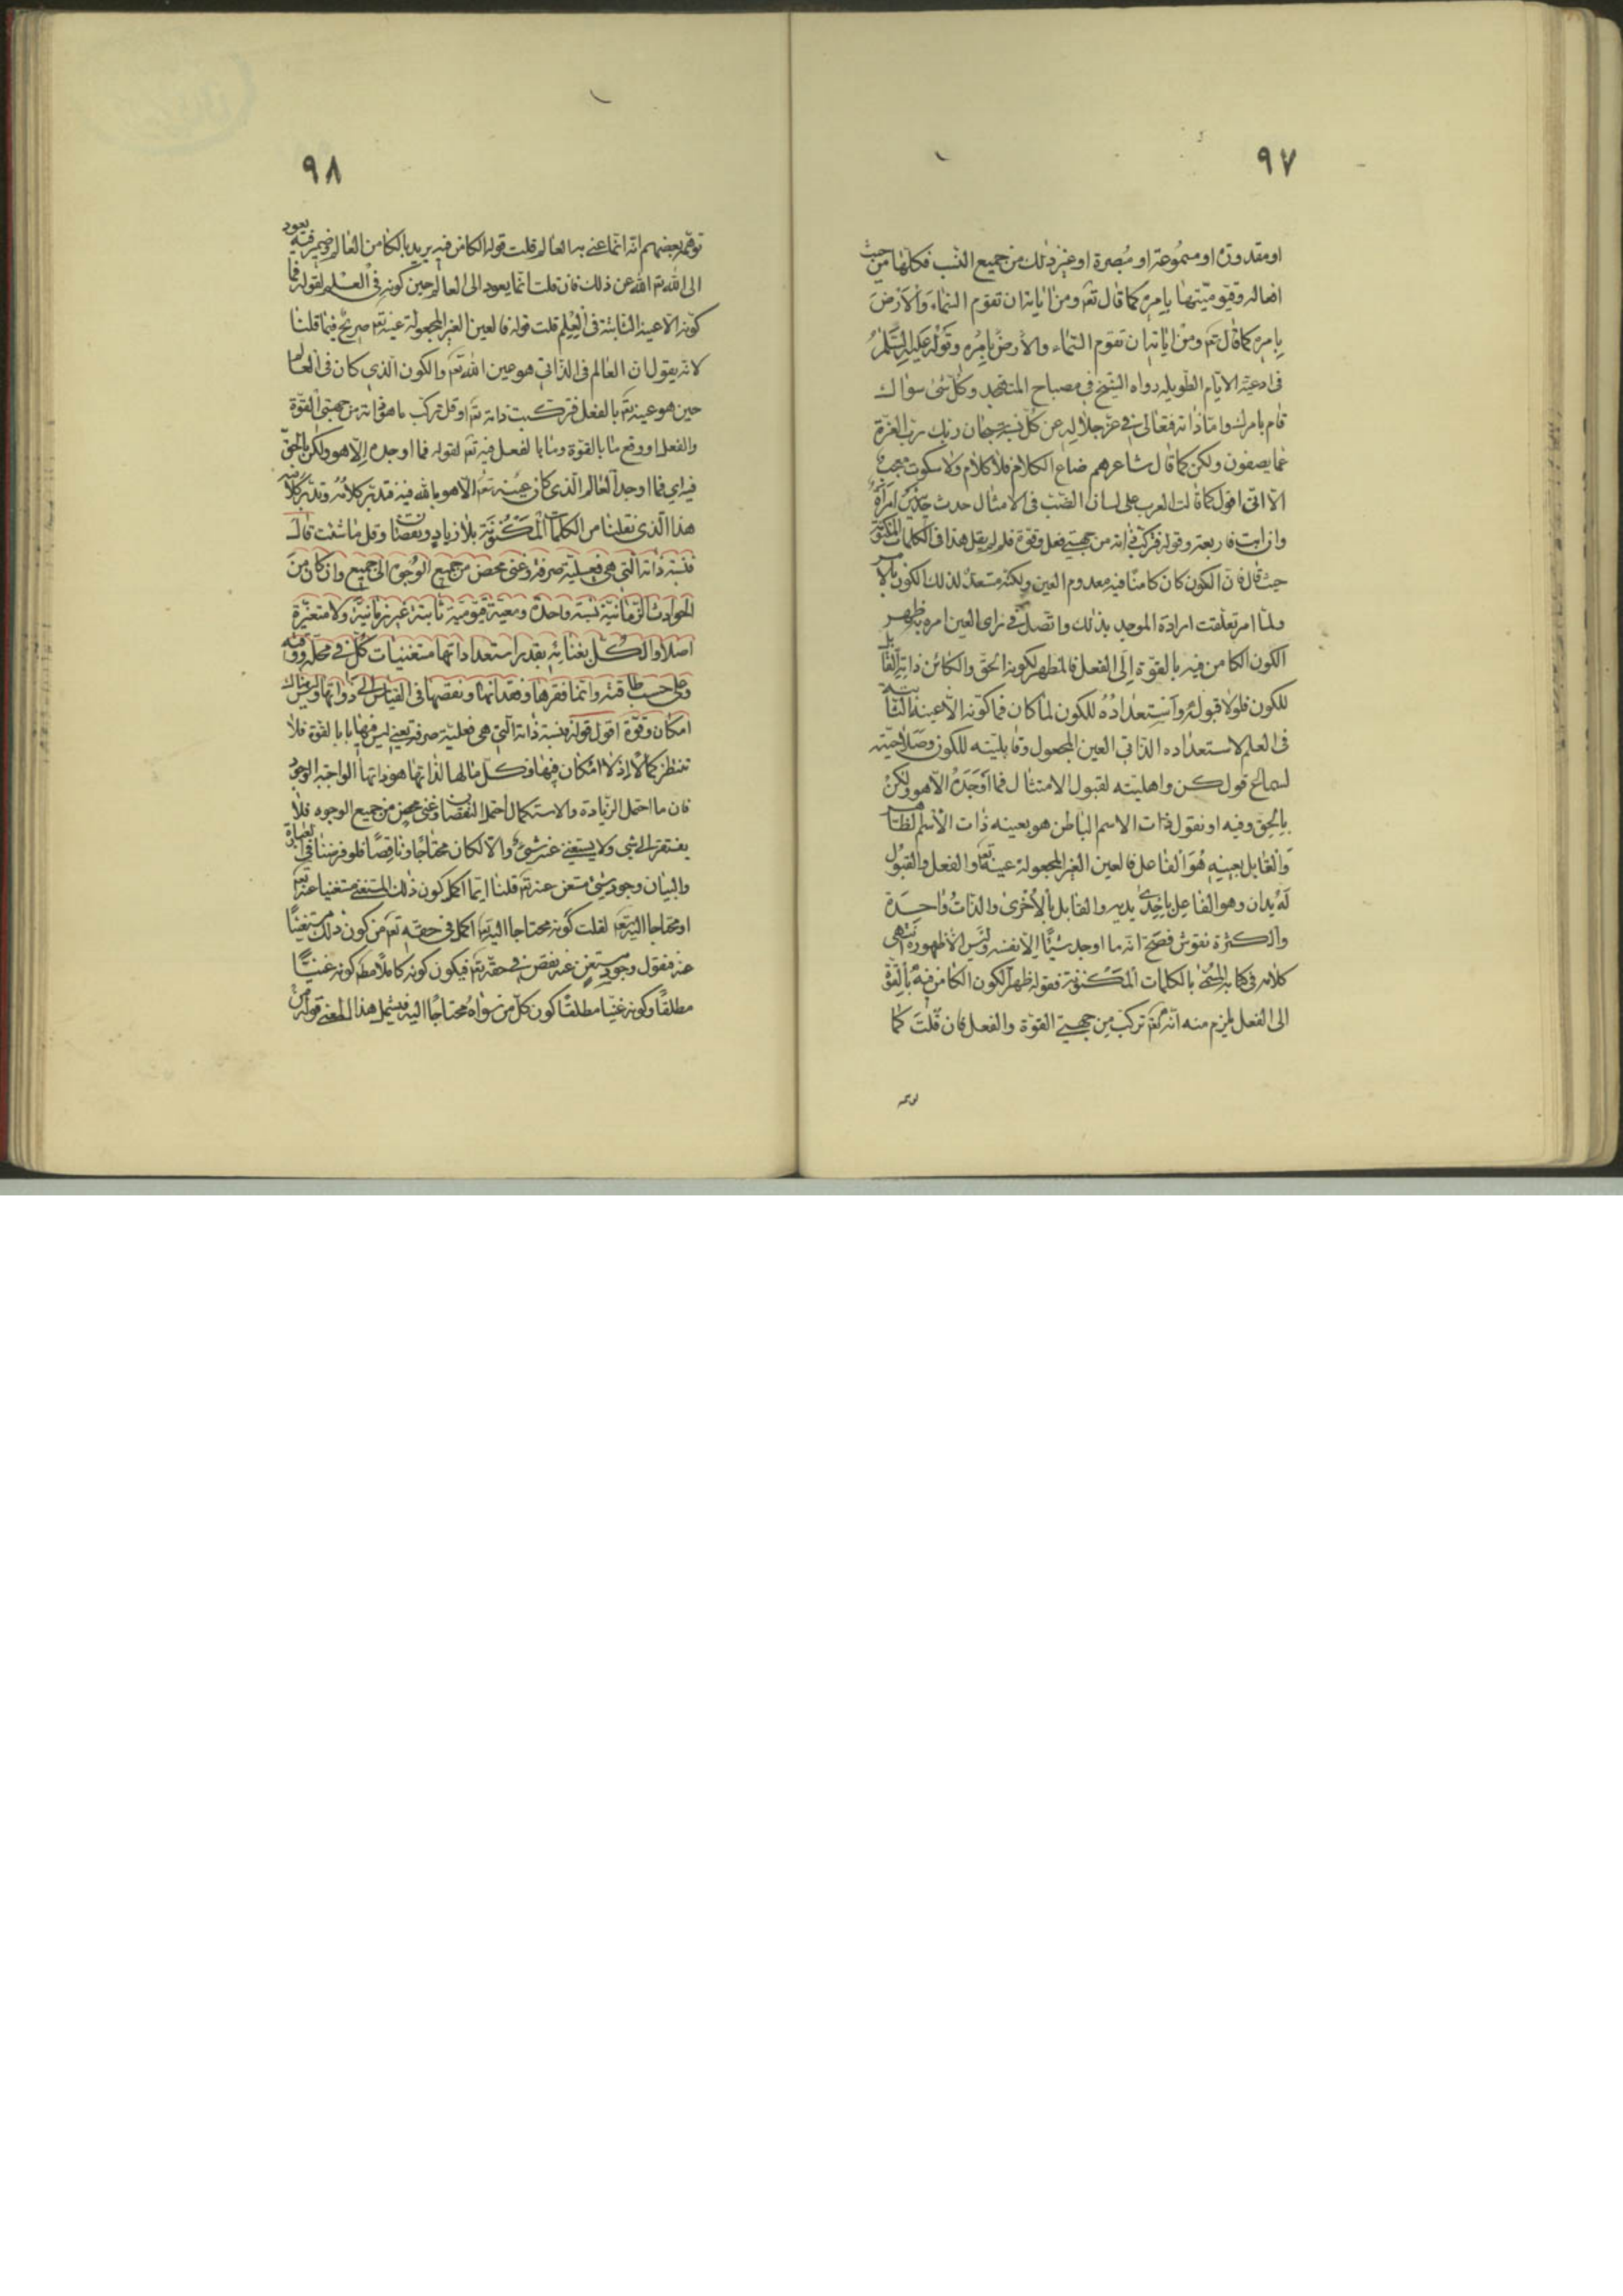 ٩٧
او مقدورة او مسموعة او مبصرة او غير ذلك من جميع النسب فكلها من حيث
افعاله وقيوميتها بامره كما قال تع ومن اياته ان تقوم السماء والارض
بامره كما قال تع ومن اياته ان تقوم السماء والارض بامره وقوله عليه السلم
فى ادعية الايام الطويله رواه الشيخ فى مصباح المتهجد وكل شئ سواك
قام بامرك واما ذاته فتعالى فى عز جلاله عن كل نسبة سبحان ربك رب العزة
عما يصفون ولكن كما قال شاعرهم ضاع الكلام فلا كلام ولا سكوت معجب
الا انى اقول كما قالت العرب على لسان الضب فى الامثال حدث حديثين امراة
وان ابت فاربعة وقوله فتركب ذاته من جهتى فعل وقوة فلم لم يقل هذا فى الكلمات المكنونة
حيث قال فان الكون كان كامنا فيه معدوم العين ولكنه مستعد لذلك الكون بالامر
ولما امر تعلقت ارادة الموجد بذلك واتصل فى راى العين امره به ظهر
الكون الكامن فيه بالقوة الى الفعل فالمظهر لكونه الحق والكائن ذاته القابل
للكون فلولا قبوله واستعداده للكون لما كان فما كونه الا عينه الثابتة
فى العلم لاستعداده الذاتى الغير المجعول وقابليته للكون وصلاحيته
لسماع قول كن واهليته لقبول الامتثال فما اوجده الا هو ولكن
بالحق وفيه او نقول ذات الاسم الباطن هو بعينه ذات الاسم الظاهر
والقابل بعينه هو الفاعل فالعين الغير المجعولة عينه تع والفعل والقبول
له يدان وهو الفاعل باحدى يديه والقابل بالاخرى والذات واحدة
والكثرة نقوش فصح انه ما اوجد شيئا الا نفسه وليس الا ظهوره انتهى
كلامه فى كتابه المسمى بالكلمات المكنونة فقوله ظهر الكون الكامن فيه بالقوة
الى الفعل يلزم منه انه تع تركب من جهتى القوة والفعل فان قلت كما
توهمه
٩٨
توهمه بعضهم انه انما عنى به العالم قلت قوله الكامن فيه يريد بالكامن العالم وضمير فيه يعود
الى الله تع الله عن ذلك فان قلت انما يعود الى العالم حين كونه فى العلم لقوله فما
كونه الا عينه الثابتة فى العلم قلت قوله فالعين الغير المجعولة عينه تع صريح فيما قلنا
لانه يقول ان العالم فى الذاتى هو عين الله تع والكون الذى كان فى العالم
حين هو عينه تع بالفعل فتركبت ذاته تع او قل تركب ما هو ذاته من جهتى القوة
والفعل او وقع ما بالقوة وما بالفعل فيه تع لقوله فما اوجده الا هو ولكن بالحق
فيه اى فما اوجد العالم الذى كان عينه تع الا هو بالله فيه فتدبر كلامه وتدبر كلامه
هذا الذى نقلنا من الكلمات المكنونة بلا زيادة ونقصان وقل ما شئت قال
فنسبة ذاته التى هى فعلية صرفة وغنى محض من جميع الوجوه الى جميع وان كان من
الحوادث الزمانية نسبة واحدة ومعية قيومية ثابتة غير زمانية ولا متغيرة
اصلا والكل بغنائه بقدر استعداداتها مستغنيات كل فى محله ووقته
وعلى حسب طاقته وانما فقرها وفقدانها ونقصها فى القياس الى ذواتها وليس هناك
امكان وقوة اقول قوله فنسبة ذاته التى هى فعلية صرفة يعنى ليس فيها ما بالقوة فلا
تنتظر كمالا اذ لا امكان فيها وكل ما لها لذاتها هو ذاتها الواجبة الوجود
فان ما احتمل الزيادة والاستكمال احتمل النقصان وغنى محض من جميع الوجوه فلا
يفتقر الى شئ ولا يستغنى عنه شئ والا لكان محتاجا وناقصا فلو فرضنا فى العبارة
والبيان وجود شئ مستغن عنه تع قلنا ايما اكمل كون ذلك المستغنى مستغنيا عنه تع
او محتاجا اليه تع لقلت كونه محتاجا اليه تع اكمل فى حقه تع من كون ذلك مستغنيا
عنه فنقول وجود مستغن عنه نقص فى حقه تع فيكون كونه كاملا مط كونه غنيا
مطلقا وكونه غنيا مطلقا كون كل من سواه محتاجا اليه فيشمل هذا المعنى قوله من